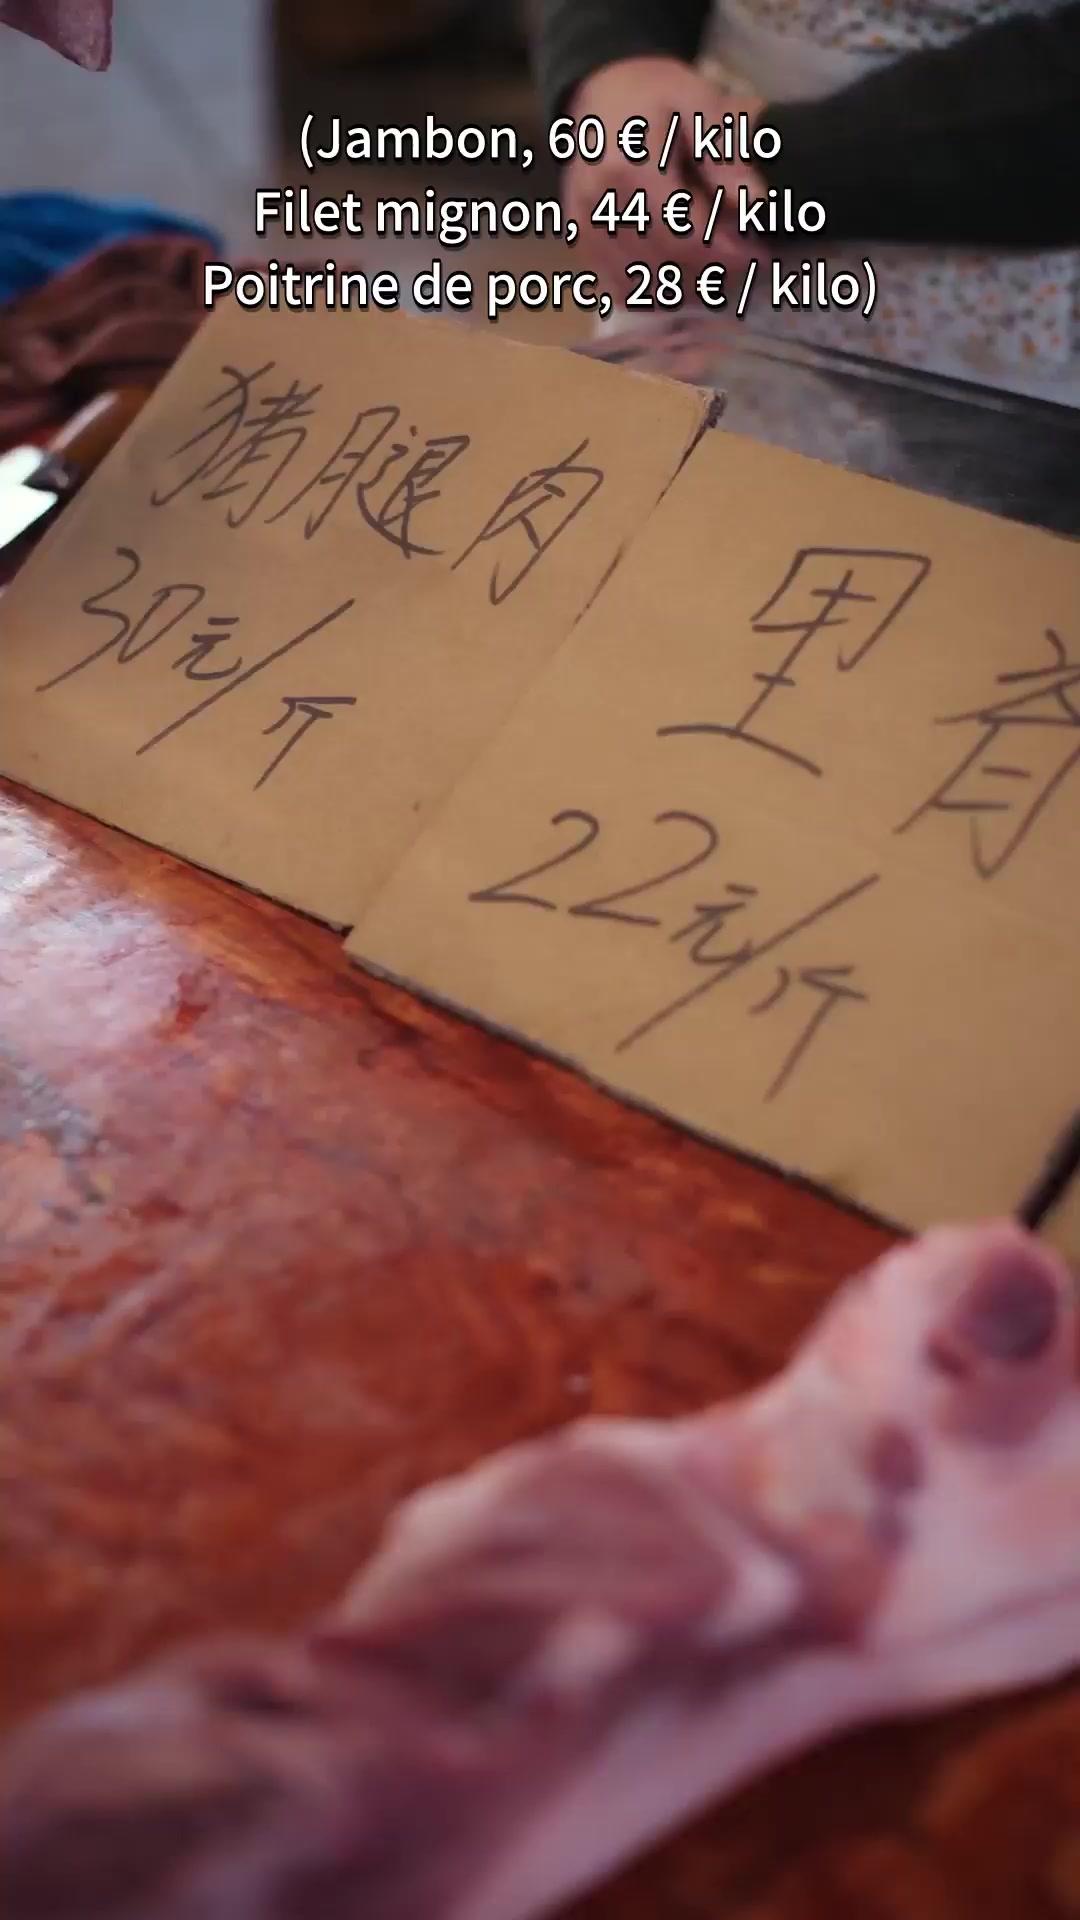 (Jambon, 60 € / kilo
Filet mignon, 44 € / kilo
Poitrine de porc, 28 € / kilo)
猪腿肉
30元/斤
里脊
22元/斤